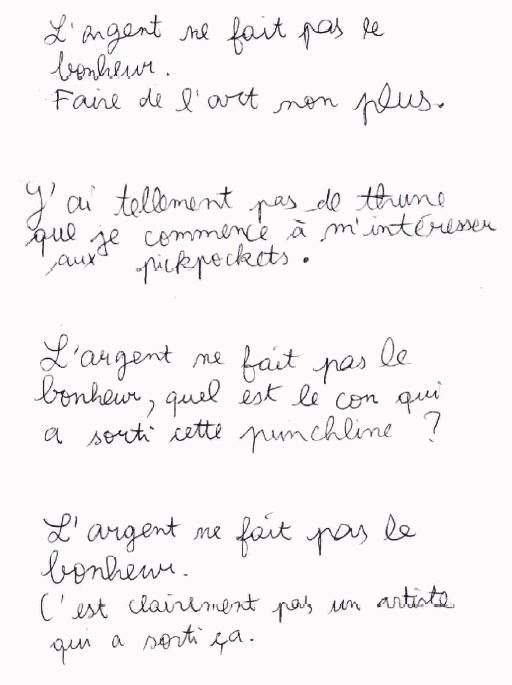 L'argent ne fait pas le
bonheur.
Faire de l'art non plus.
J'ai tellement pas de thune
que je commence à m'intéresser
aux pickpockets.
L'argent ne fait pas le
bonheur, quel est le con qui
a sorti cette punchline ?
L'argent ne fait pas le
bonheur.
C'est clairement pas un artiste
qui a sorti ça.